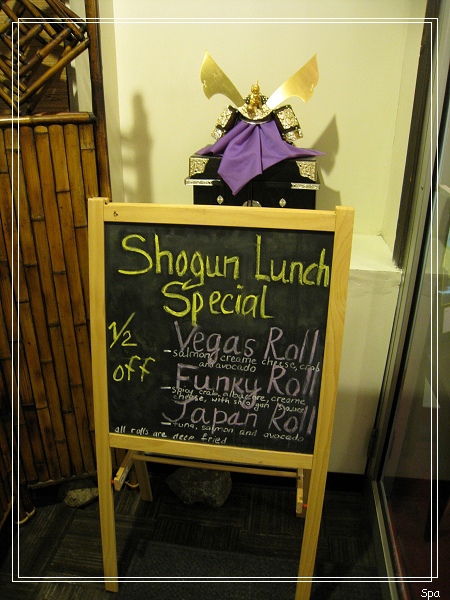 Shogun Lunch
Special
1/2
off
Vegas Roll
-salmon, creame cheese, crab
and avocado
Funky Roll
-spicy crab, albacore, creame
cheese, with shogun sauce
Japan Roll
-tuna, salmon and avocado
all rolls are deep fried
Spa